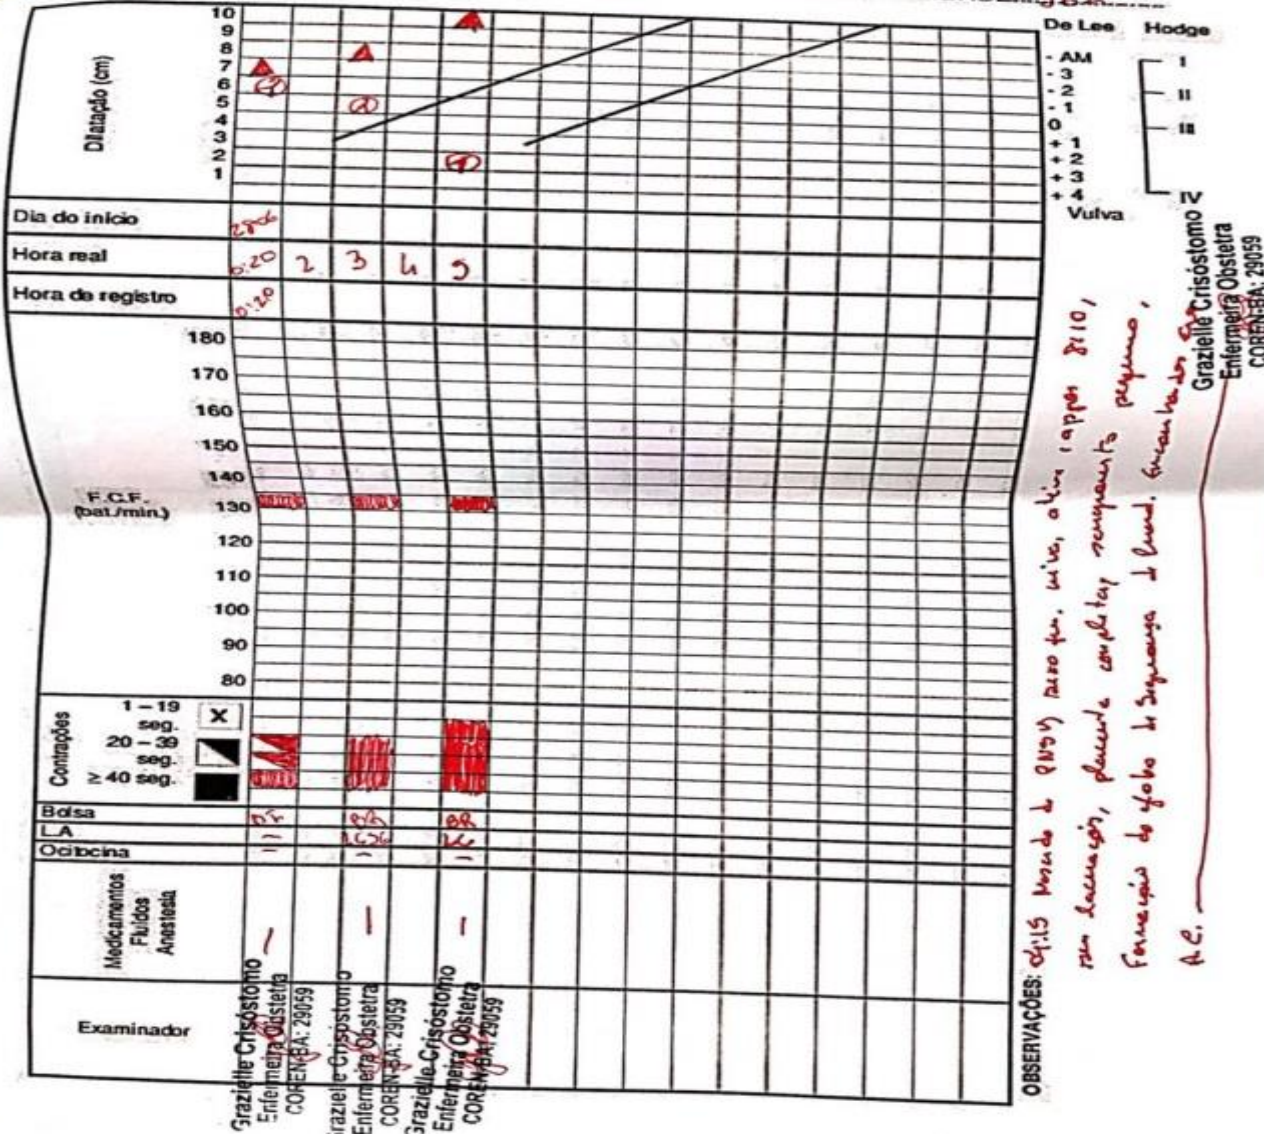 De Lee Hodge
10
9
8
7
6
5
4
3
2
1
Dilatação (cm)
- AM
- 3
- 2
- 1
0
+ 1
+ 2
+ 3
+ 4
Vulva
I
II
III
IV
Dia do início 28/06
Hora real 0:20 2 3 4 5
Hora de registro 0:20
F.C.F.
(bat./min.)
180
170
160
150
140
130
120
110
100
90
80
Contrações
1 – 19
seg.
X
20 – 39
seg.
≥ 40 seg.
Bolsa BR BR
L.A
Ocitocina – – –
Medicamentos
Fluídos
Anestesia
— — —
Examinador
Grazielle Crisóstomo
Enfermeira Obstetra
COREN-BA: 29059
Grazielle Crisóstomo
Enfermeira Obstetra
COREN-BA: 29059
Grazielle Crisóstomo
Enfermeira Obstetra
COREN-BA: 29059
OBSERVAÇÕES: 04:15 de RN viva, 8/10,
placenta completa,
Formação do globo de Segurança de Pinard.
Grazielle Crisóstomo
Enfermeira Obstetra
COREN-BA: 29059